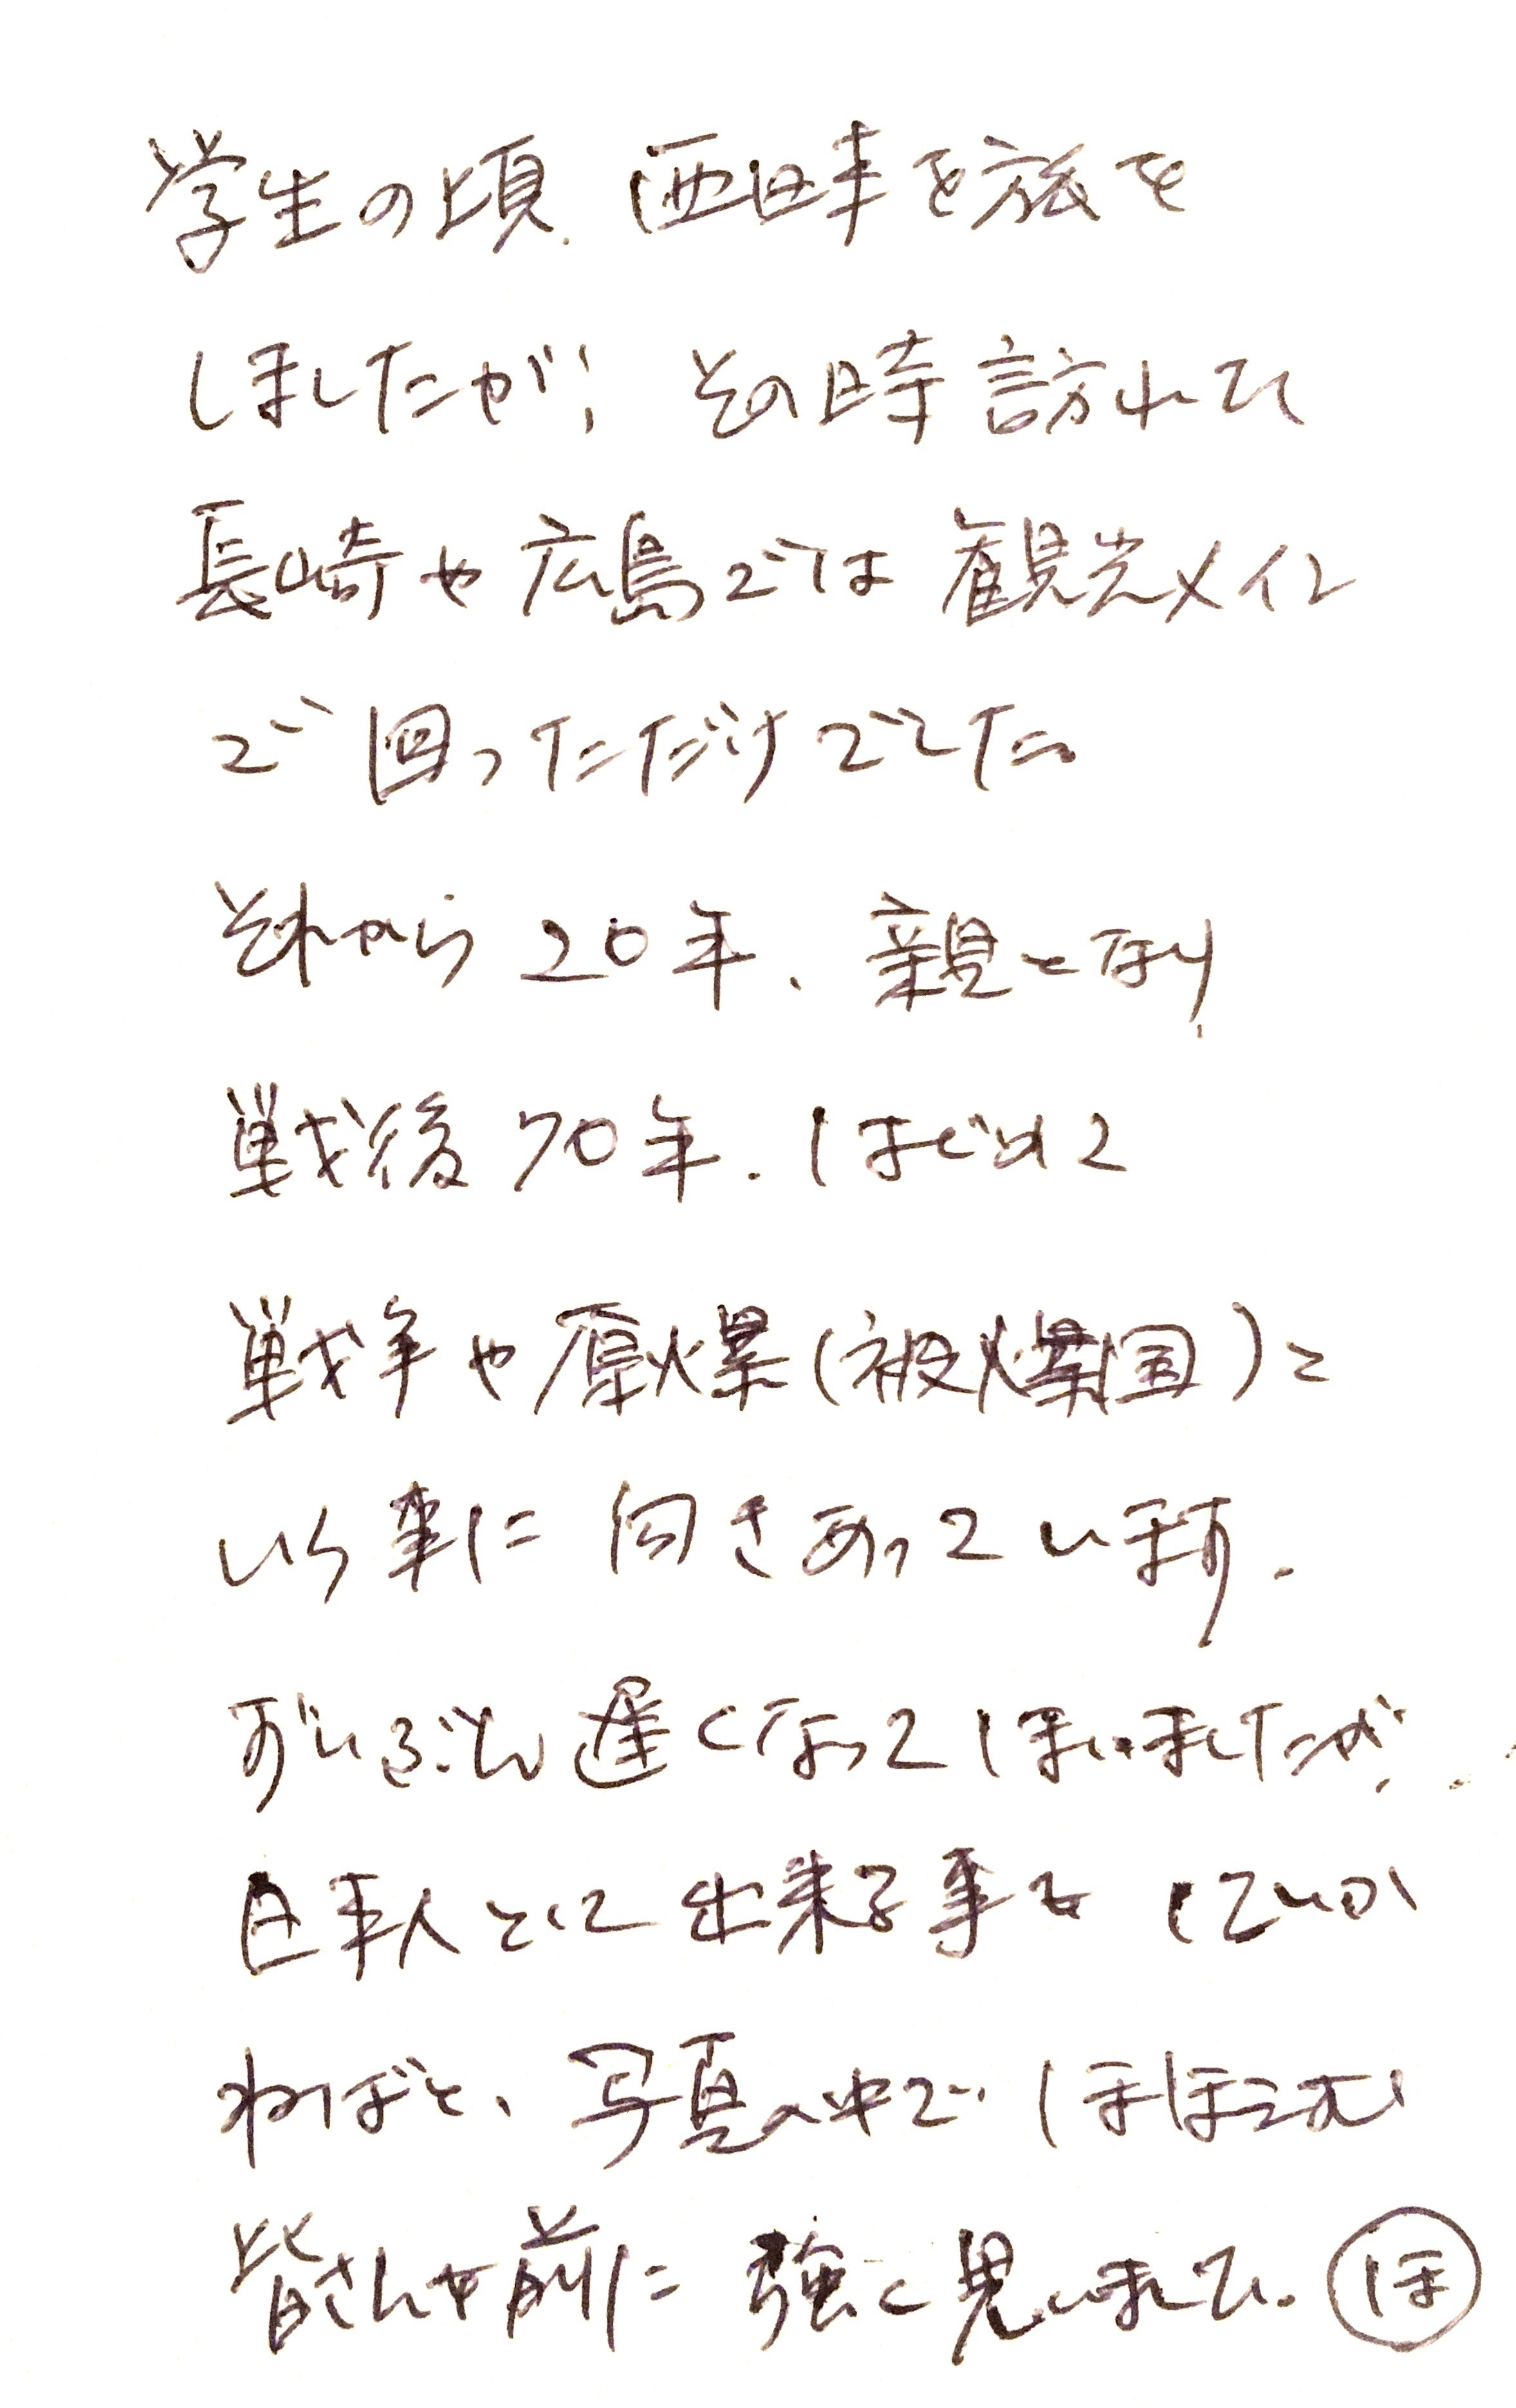 学生の頃、西日本を旅を
しましたが、その時訪れた
長崎や広島では観光メイン
で回っただけでした。
それから20年、親となり、
戦後70年、はじめて
戦争や原爆(被爆国)と
いう事に向きあっています。
ずいぶん遅くなってしまいましたが、
日本人として出来る事をしていか
ねばと、写真の中でほほえむ
皆さんを前に強く思いました。ほ